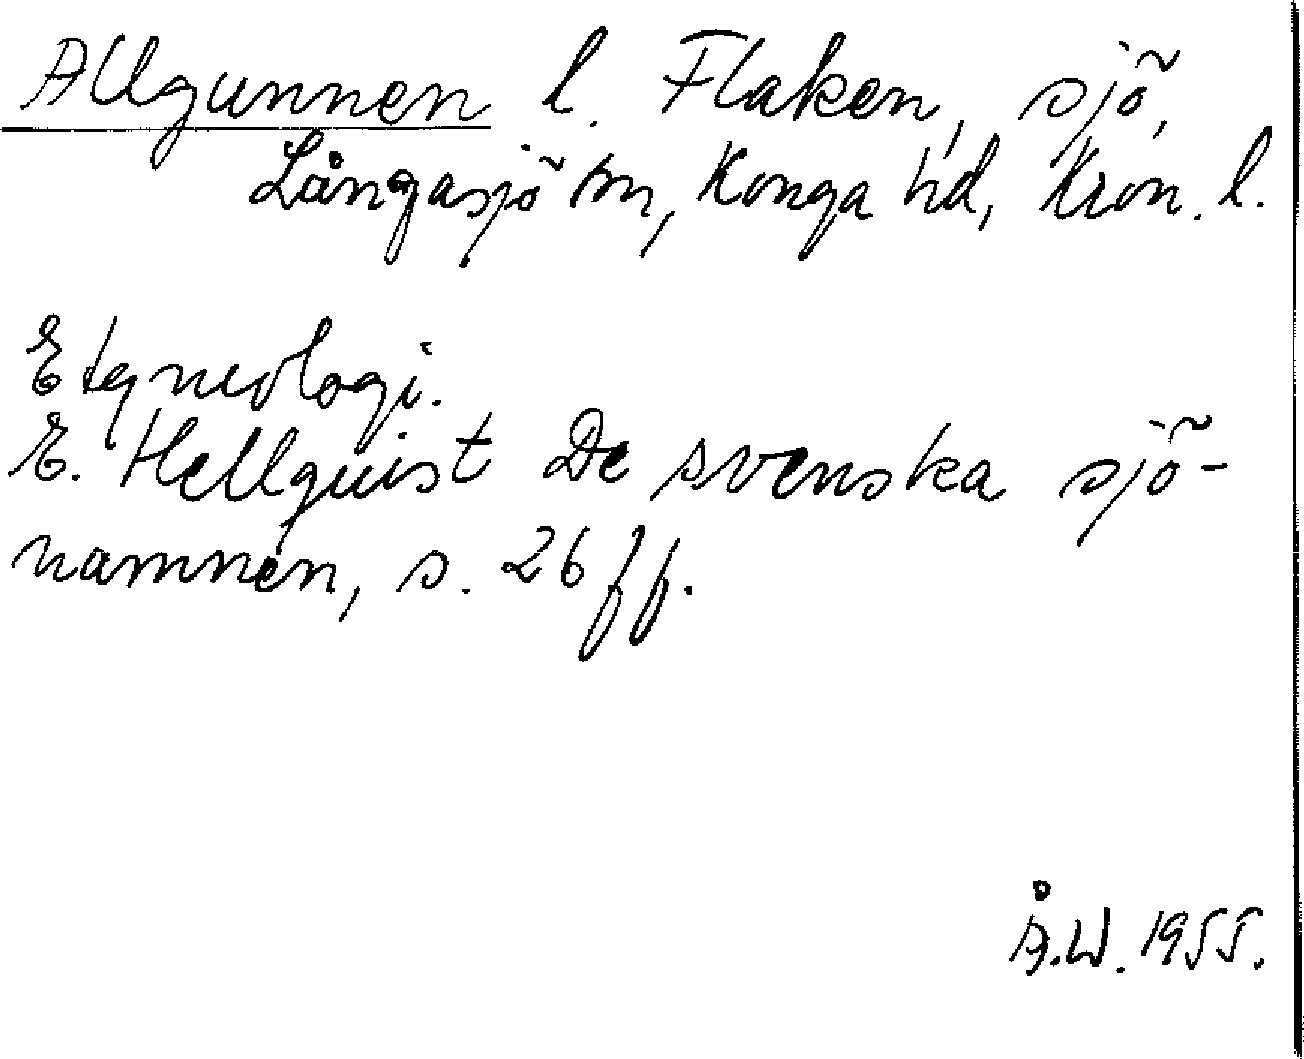 Allgunnen l. Flaken, sjö,
Långasjö sn, Konga hd, Kron. l.
Etymologi.
E. Hellquist De svenska sjö-
namnen, s. 26 ff.
Å.W. 1955.